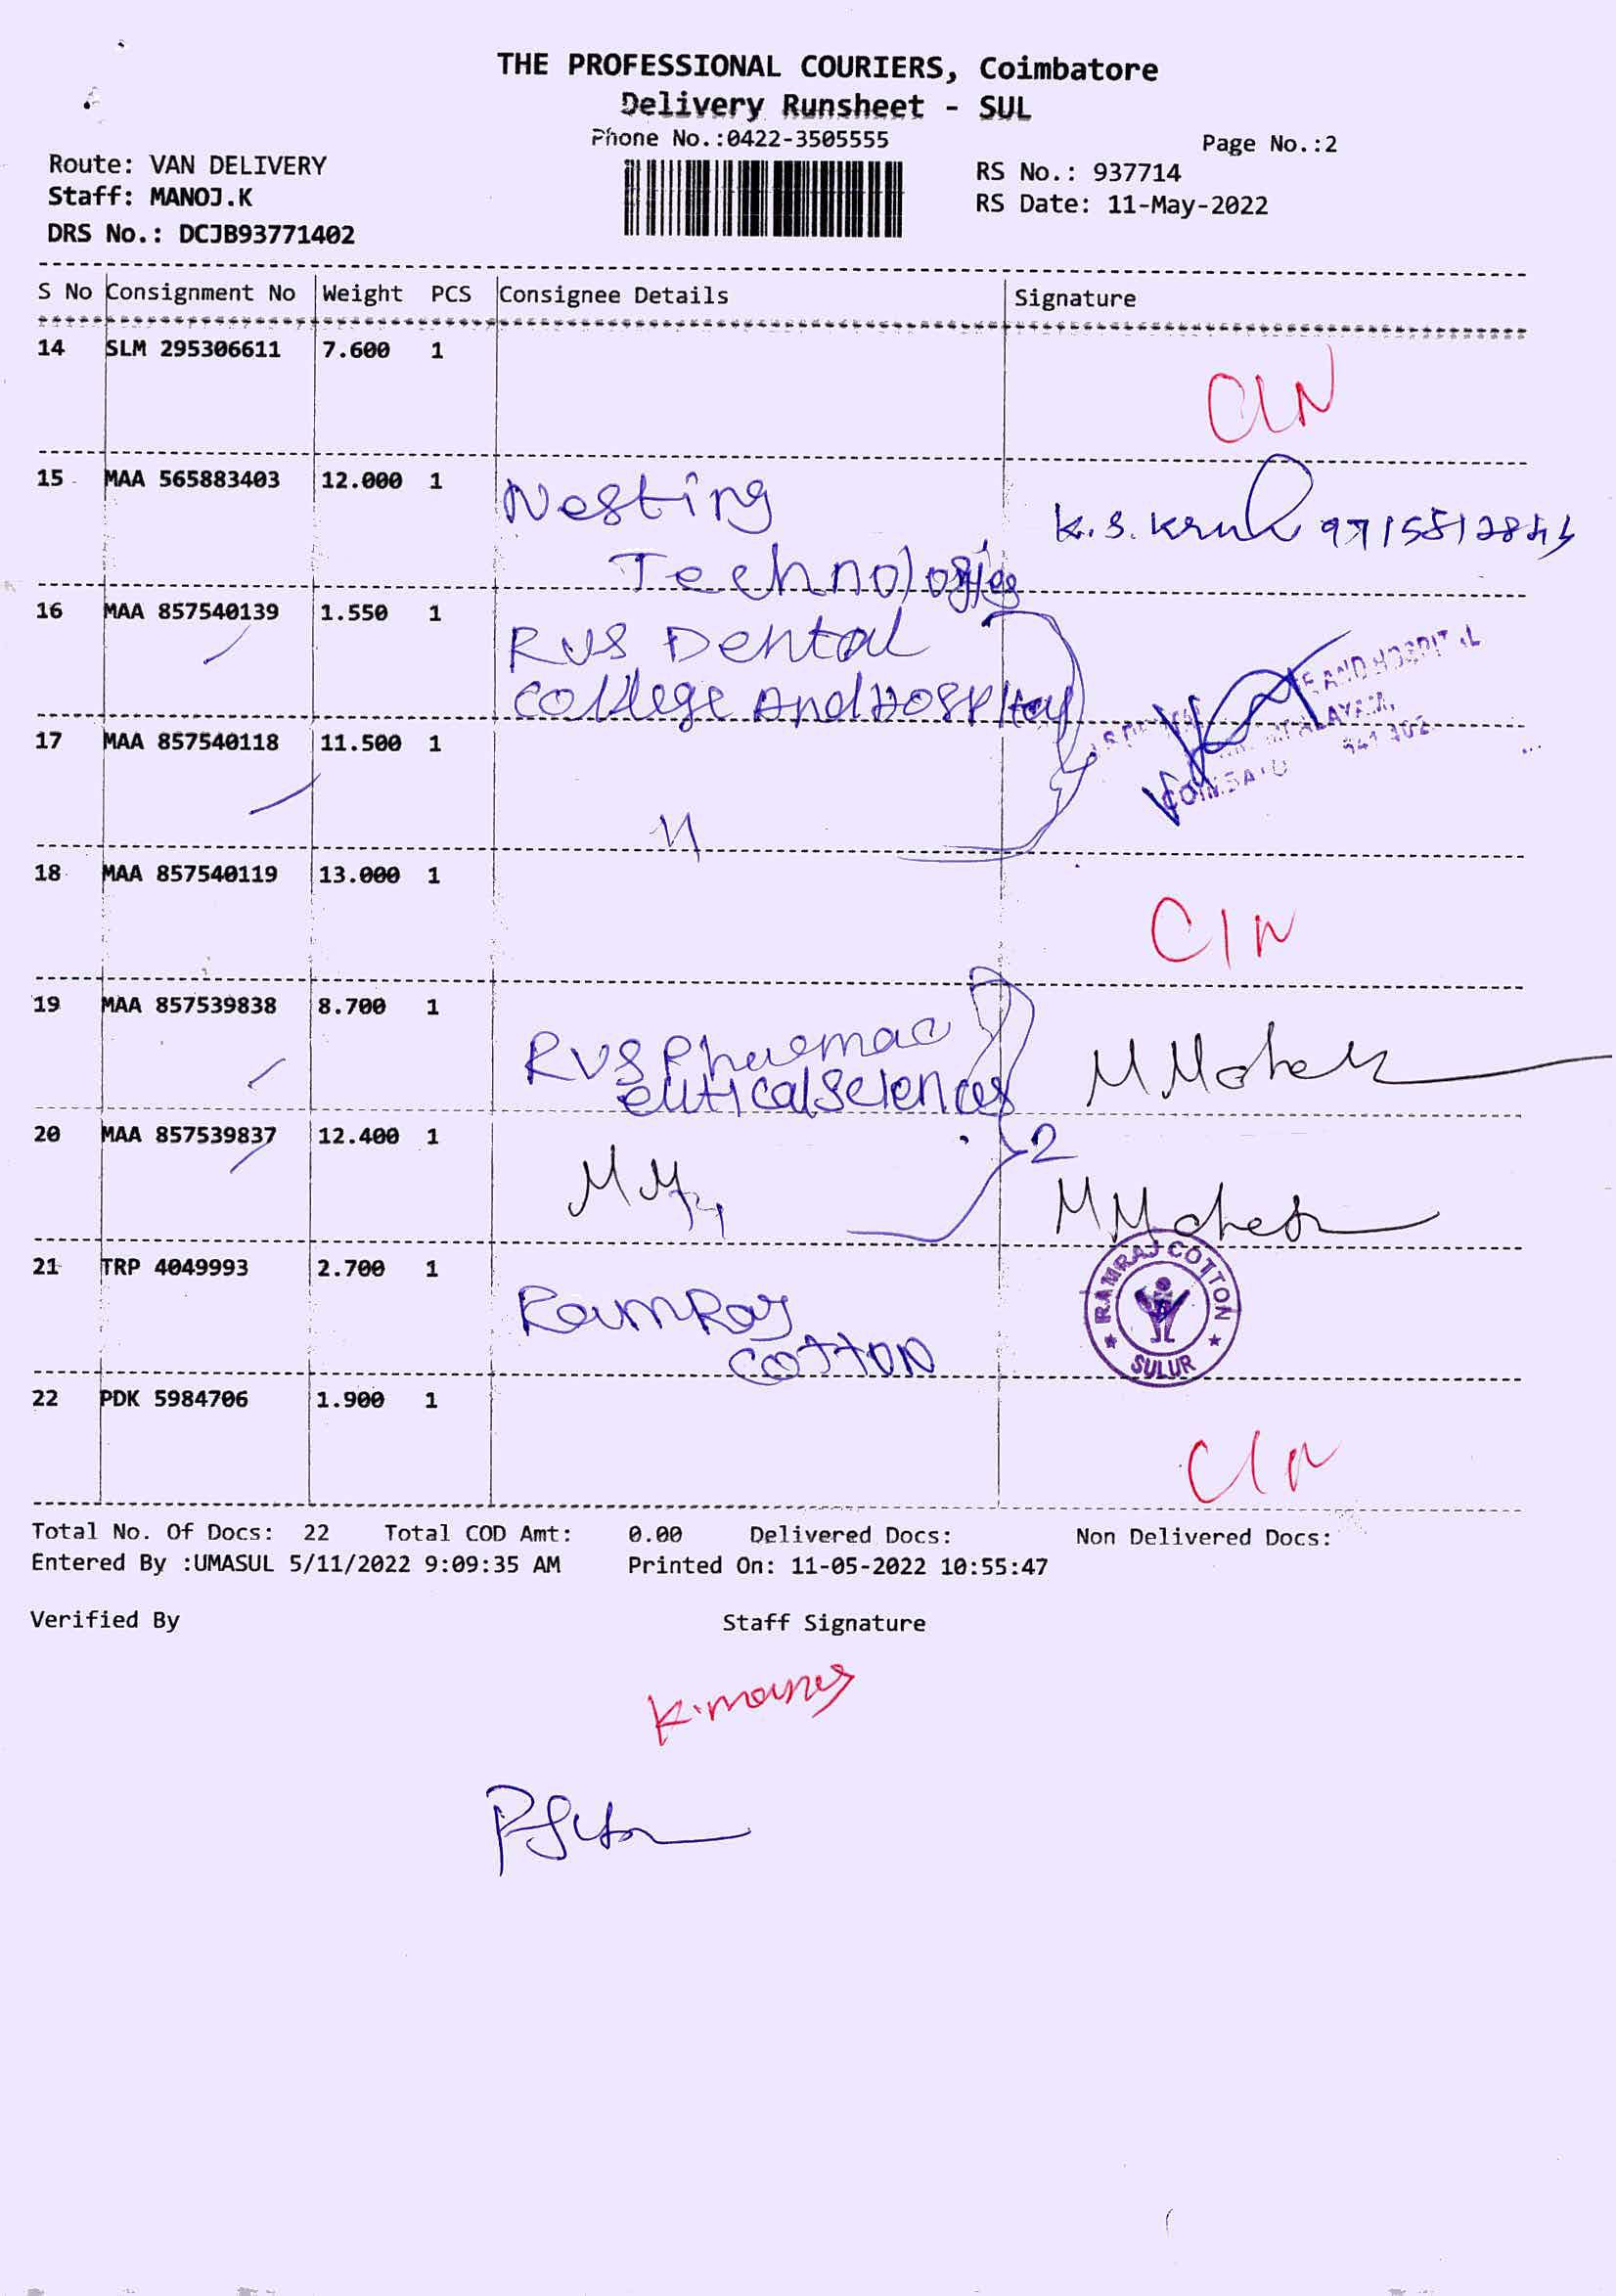 THE PROFESSIONAL COURIERS, Coimbatore
Delivery Runsheet - SUL
Phone No.:0422-3505555
Page No.:2
Route: VAN DELIVERY
RS No.: 937714
Staff: MANOJ.K
RS Date: 11-May-2022
DRS No.: DCJB93771402
S No Consignment No Weight PCS Consignee Details Signature
14 SLM 295306611 7.600 1
CIN
15 MAA 565883403 12.000 1 Nesting
Technologies
K.S.
16 MAA 857540139 1.550 1 RVS Dental
College And Hospital
AND HOSPITAL
17 MAA 857540118 11.500 1
18 MAA 857540119 13.000 1
CIN
19 MAA 857539838 8.700 1
RVS Pharmac
euticalSciences
20 MAA 857539837 12.400 1
2
21 TRP 4049993 2.700 1
RamRaj
COTTON
RAMRAJ COTTON
SULUR
22 PDK 5984706 1.900 1
CIN
Total No. Of Docs: 22 Total COD Amt: 0.00 Delivered Docs: Non Delivered Docs:
Entered By :UMASUL 5/11/2022 9:09:35 AM Printed On: 11-05-2022 10:55:47
Verified By Staff Signature
K.manoj